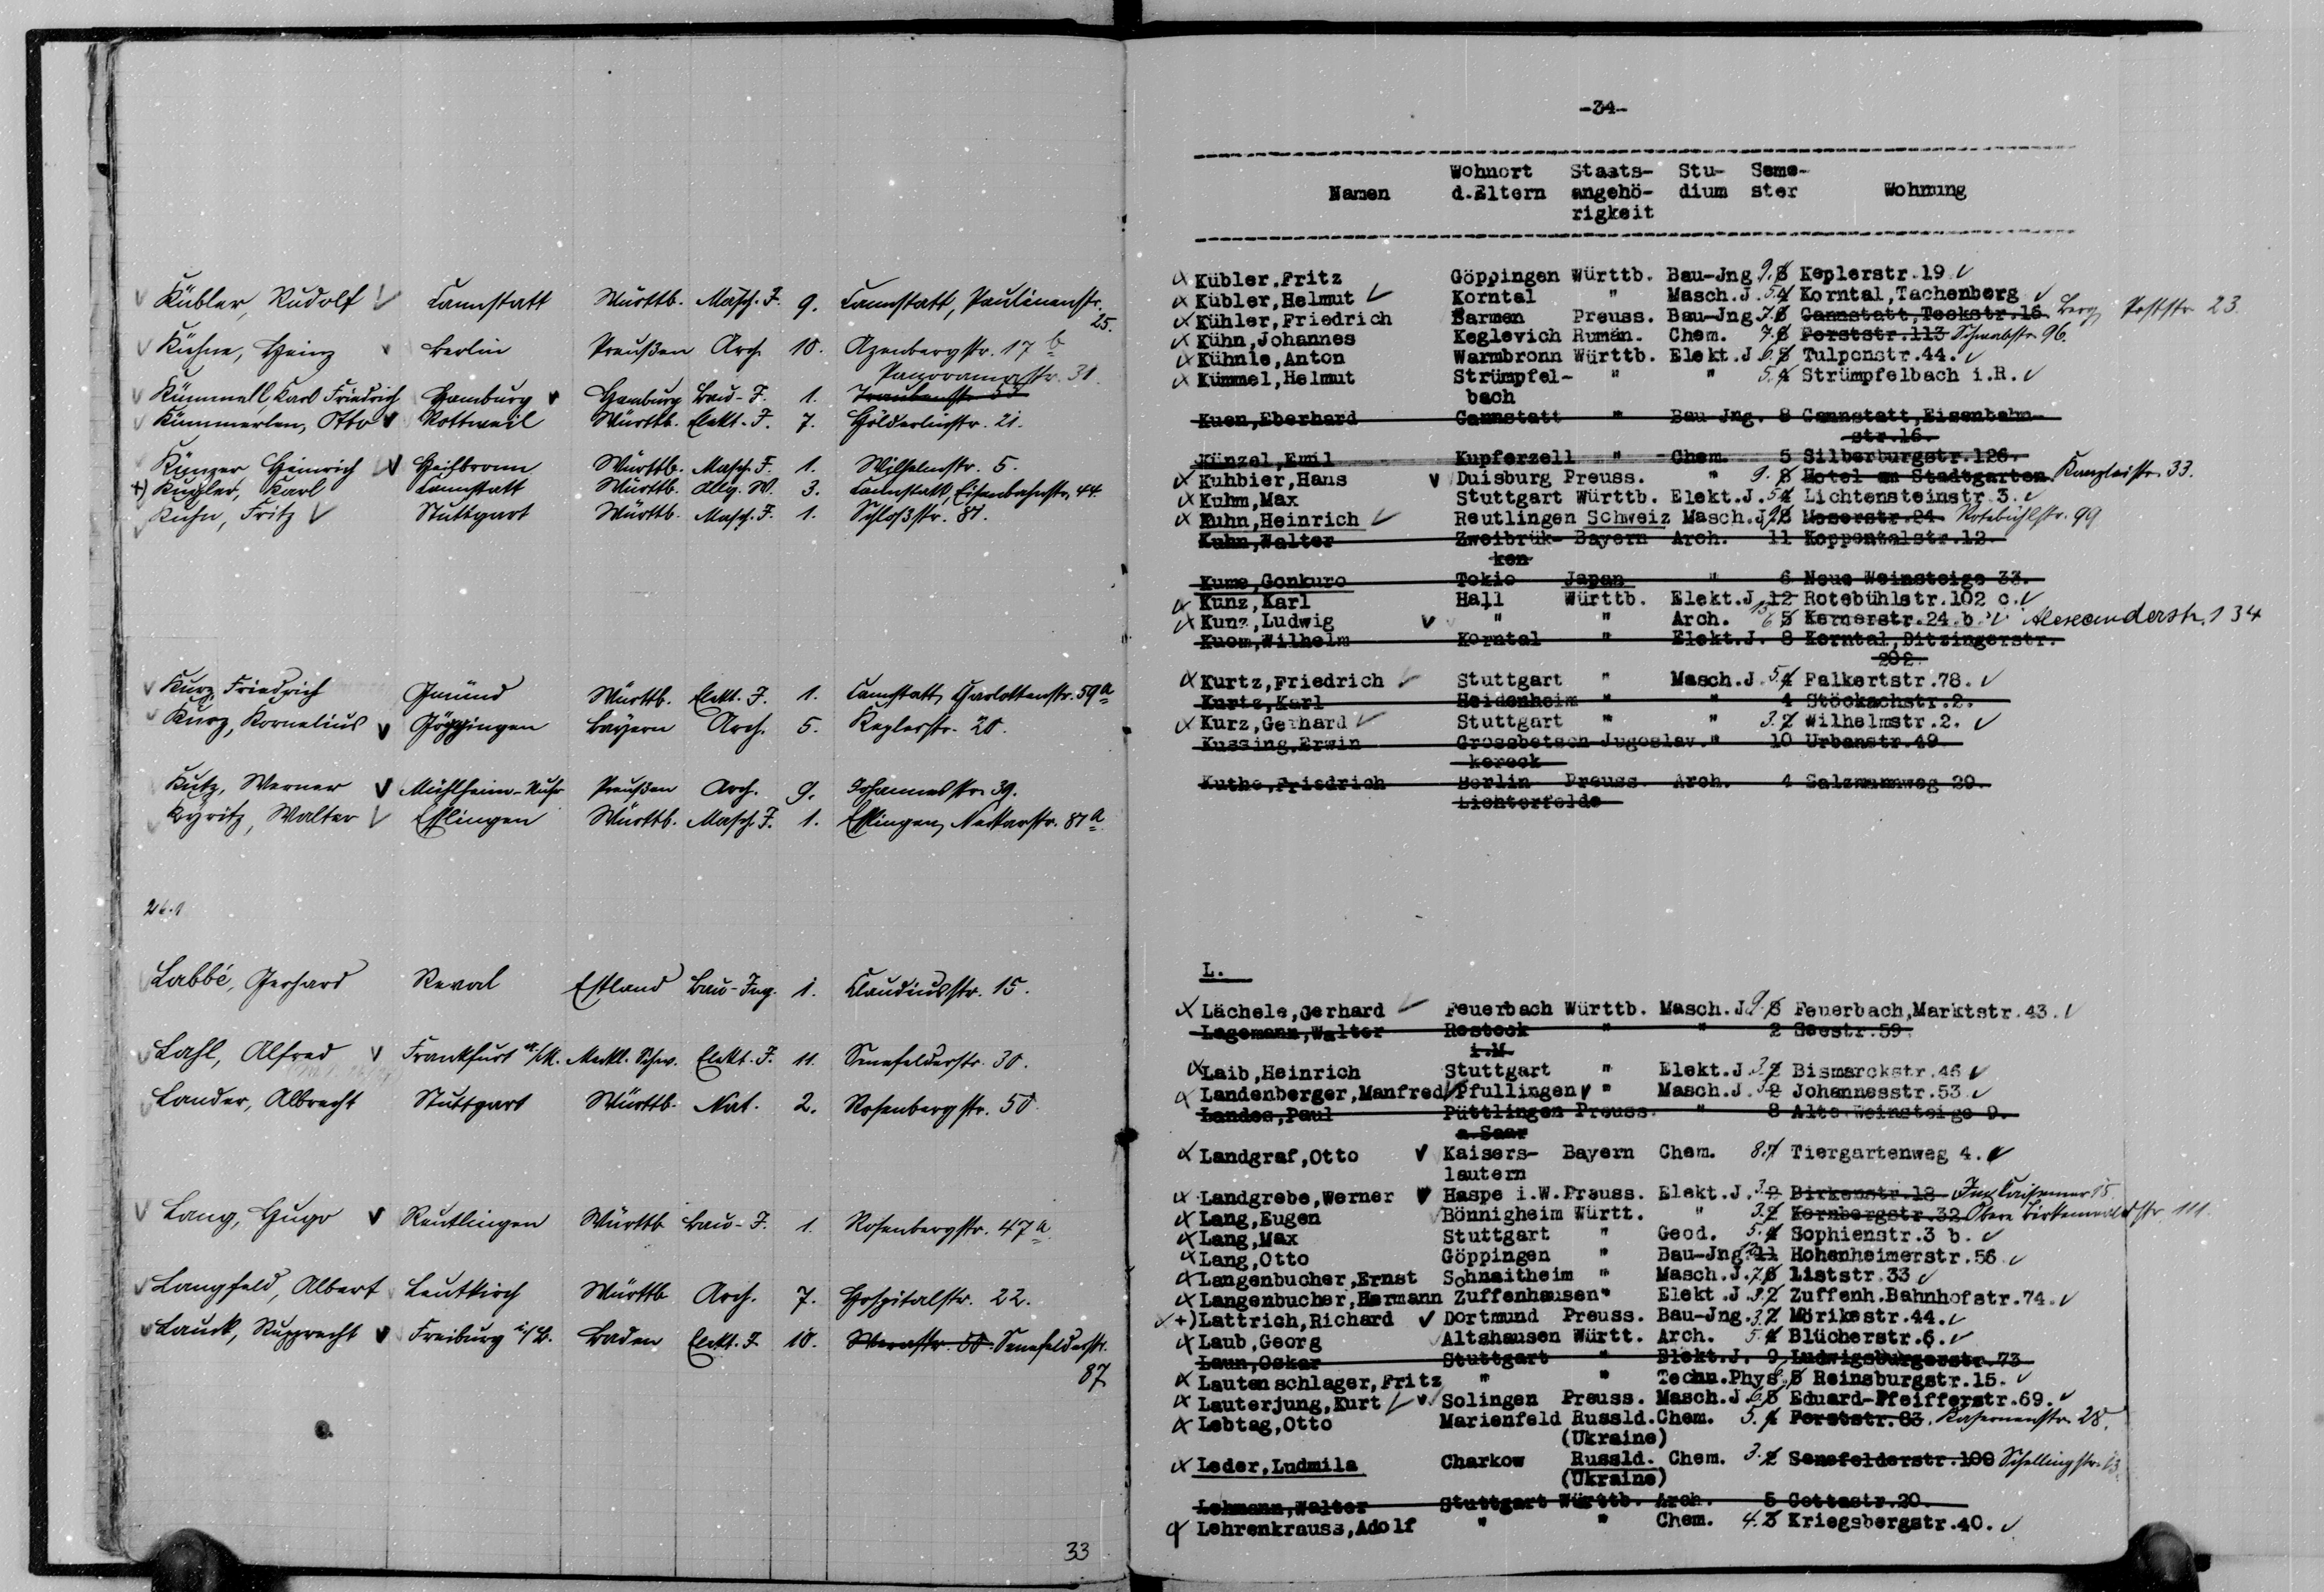 Kübler, Rudolf Cannstatt Württb. Masch. J. 9. Cannstatt, Paulinenstr.
25.
Kühne, Heinz Berlin Preußen Arch. 10. Azenbergstr. 17 b
Panoramastr. 31.
Kümmell, Karl Friedrich Hamburg Hamburg Bau-J. 1. Traubenstr. 55
Kümmerlen, Otto Rottweil Württb. Elekt. J. 7. Hölderlinstr. 21.
Künzer Heinrich Heilbronn Württb. Masch. J. 1. Wilhelmstr. 5.
+) Kugler, Karl Cannstatt Württb. Allg. W. 3. Cannstatt, Eisenbahnstr. 44.
Kuhn, Fritz Stuttgart Württb. Masch. J. 1. Schloßstr. 81.
Kurz, Friedrich Gmünd Württb. Elekt. J. 1. Cannstatt, Charlottenstr. 59a
Kurz, Kornelius Göggingen Bayern Arch. 5. Keplerstr. 20.
Kutz, Werner Mühlheim-Ruhr Preußen Arch. 9. Johannesstr. 39.
Kyritz, Walter Eßlingen Württb. Masch. J. 1. Eßlingen, Neckarstr. 81a
26.1
Labbé, Gerhard Reval Estland Bau-Ing. 1. Claudiusstr. 15.
Lahl, Alfred Frankfurt a/M. Meckl. Schw. Elekt. J. 11. Senefelderstr. 30.
Lander, Albrecht Stuttgart Württb. Nat. 2. Rosenbergstr. 50.
Lang, Hugo Reutlingen Württb. Bau-J. 1. Rosenbergstr. 47a
Langfeld, Albert Leutkirch Württb. Arch. 7. Hospitalstr. 22.
Lauck, Rupprecht Freiburg i/B. Baden Elekt. J. 10. Senefelderstr.
87
33
-34-
Namen Wohnort d.Eltern Staats-angehö-rigkeit Stu-dium Seme-ster Wohnung
Kübler,Fritz Göppingen Württb. Bau-Jng 9. 8 Keplerstr.19
Kübler,Helmut Korntal " Masch.J. 5. 4 Korntal,Tachenberg
Kühler,Friedrich Barmen Preuss. Bau-Jng 7. 6 Cannstatt,Teckstr.16 Berg, Poststr. 23.
Kühn,Johannes Keglevich Rumän. Chem. 7. 6 Forststr.113 Schwabstr. 96.
Kühnle,Anton Warmbronn Württb. Elekt.J 6. 5 Tulpenstr.44.
Kümmel,Helmut Strümpfel- " " 5. 4 Strümpfelbach i.R.
bach
Kuen,Eberhard Cannstatt " Bau Jng. 8 Cannstatt,Eisenbahn-
str.16.
Künzel,Emil Kupferzell " Chem. 5 Silberburgstr.126.
Kuhbier,Hans Duisburg Preuss. " 9. 8 Hotel am Stadtgarten Kanzleistr. 33.
Kuhm,Max Stuttgart Württb. Elekt.J. 5. 4 Lichtensteinstr.3.
Kuhn,Heinrich Reutlingen Schweiz Masch.J 9. 8 Moserstr.24 Rotebühlstr. 99
Kuhn,Walter Zweibrük- Bayern Arch. 11 Koppentalstr.12.
ken
Kume,Gonkuro Tokio Japan " 6 Neue Weinsteige 33.
Kunz,Karl Hall Württb. Elekt.J 12 Rotebühlstr.102 c.
Kunz,Ludwig " " Arch. 6 5 Kernerstr.24 b. Alexanderstr. 134
Kuom,Wilhelm Korntal " Elekt.J. 8 Korntal,Ditzingerstr.
202.
Kurtz,Friedrich Stuttgart " Masch.J 5. 4 Falkertstr.78.
Kurtz,Karl Heidenheim " " 4 Stöckachstr.2.
Kurz,Gerhard Stuttgart " " 3. 2 Wilhelmstr.2.
Kussing,Erwin Grossbetsch Jugoslav." 10 Urbanstr.49
kereck
Kuthe,Friedrich Berlin Preuss. Arch. 4 Salzmannweg 29.
Lichterfelde
L.
Lächele,Gerhard Feuerbach Württb. Masch.J 9. 8 Feuerbach,Marktstr.43.
Lagemann,Walter Rostock " " 2 Seestr.59.
i.M.
Laib,Heinrich Stuttgart " Elekt.J 3. 2 Bismarckstr.46
Landenberger,Manfred Pfullingen " Masch.J 3. 2 Johannesstr.53
Landes,Paul Püttlingen Preuss. " 8 Alte Weinsteige 9.
a.Saar
Landgraf,Otto Kaisers- Bayern Chem. 8. 7 Tiergartenweg 4.
lautern
Landgrebe,Werner Haspe i.W.Preuss. Elekt.J. 3. 2 Birkenstr.18
Lang,Eugen Bönnigheim Württ. " 3. 2 Kornbergstr.32 Obere Birkenwaldstr. 111.
Lang,Max Stuttgart " Geod. 5. 4 Sophienstr.3 b.
Lang,Otto Göppingen " Bau-Jng. 12 11 Hohenheimerstr.56.
Langenbucher,Ernst Schnaitheim " Masch.J. 7. 6 Liststr.33
Langenbucher,Hermann Zuffenhausen" Elekt.J. 3. 2 Zuffenh.Bahnhofstr.74.
+)Lattrich,Richard Dortmund Preuss. Bau-Jng. 3. 2 Mörikestr.44.
Laub,Georg Altshausen Württ. Arch. 5. 4 Blücherstr.6.
Laun,Oskar Stuttgart " Elekt.J. 9 Ludwigsburgerstr.73
Lautenschlager,Fritz " " Techn.Phys 6. 5 Reinsburgstr.15.
Lauterjung,Kurt Solingen Preuss. Masch.J 6. 5 Eduard-Pfeifferstr.69.
Lebtag,Otto Marienfeld Russld.Chem. 5. 4 Forststr.83. Kasernenstr. 28.
(Ukraine)
Leder,Ludmila Charkow Russld. Chem. 3. 2 Senefelderstr.100 Schellingstr. 13
(Ukraine)
Lehmann,Walter Stuttgart Württb. Arch. 5 Cottastr.20.
Lehrenkrauss,Adolf " " Chem. 4. 3 Kriegsbergstr.40.